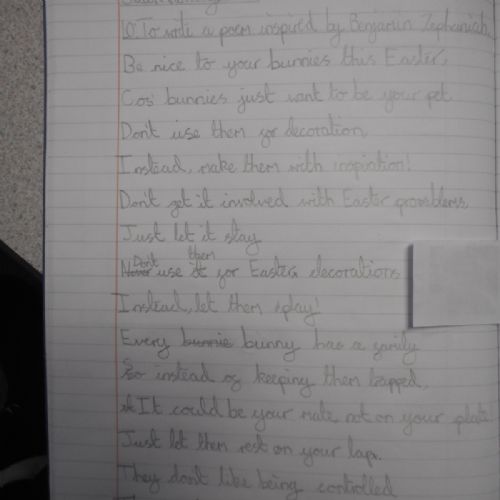 LO: To write a poem inspired by Benjamin Zephaniah
Be nice to your bunnies this Easter,
Cos' bunnies just want to be your pet.
Don't use them for decoration,
Instead, make them with inspiration!
Don't get it involved with Easter promblems,
Just let it stay
Don't them
Never use it for Easter decorations
Instead, let them play!
Every bunnie bunny has a family
So instead of keeping them trapped,
It could be your mate, not on your plate!
Just let them rest on your lap.
They don't like being controlled